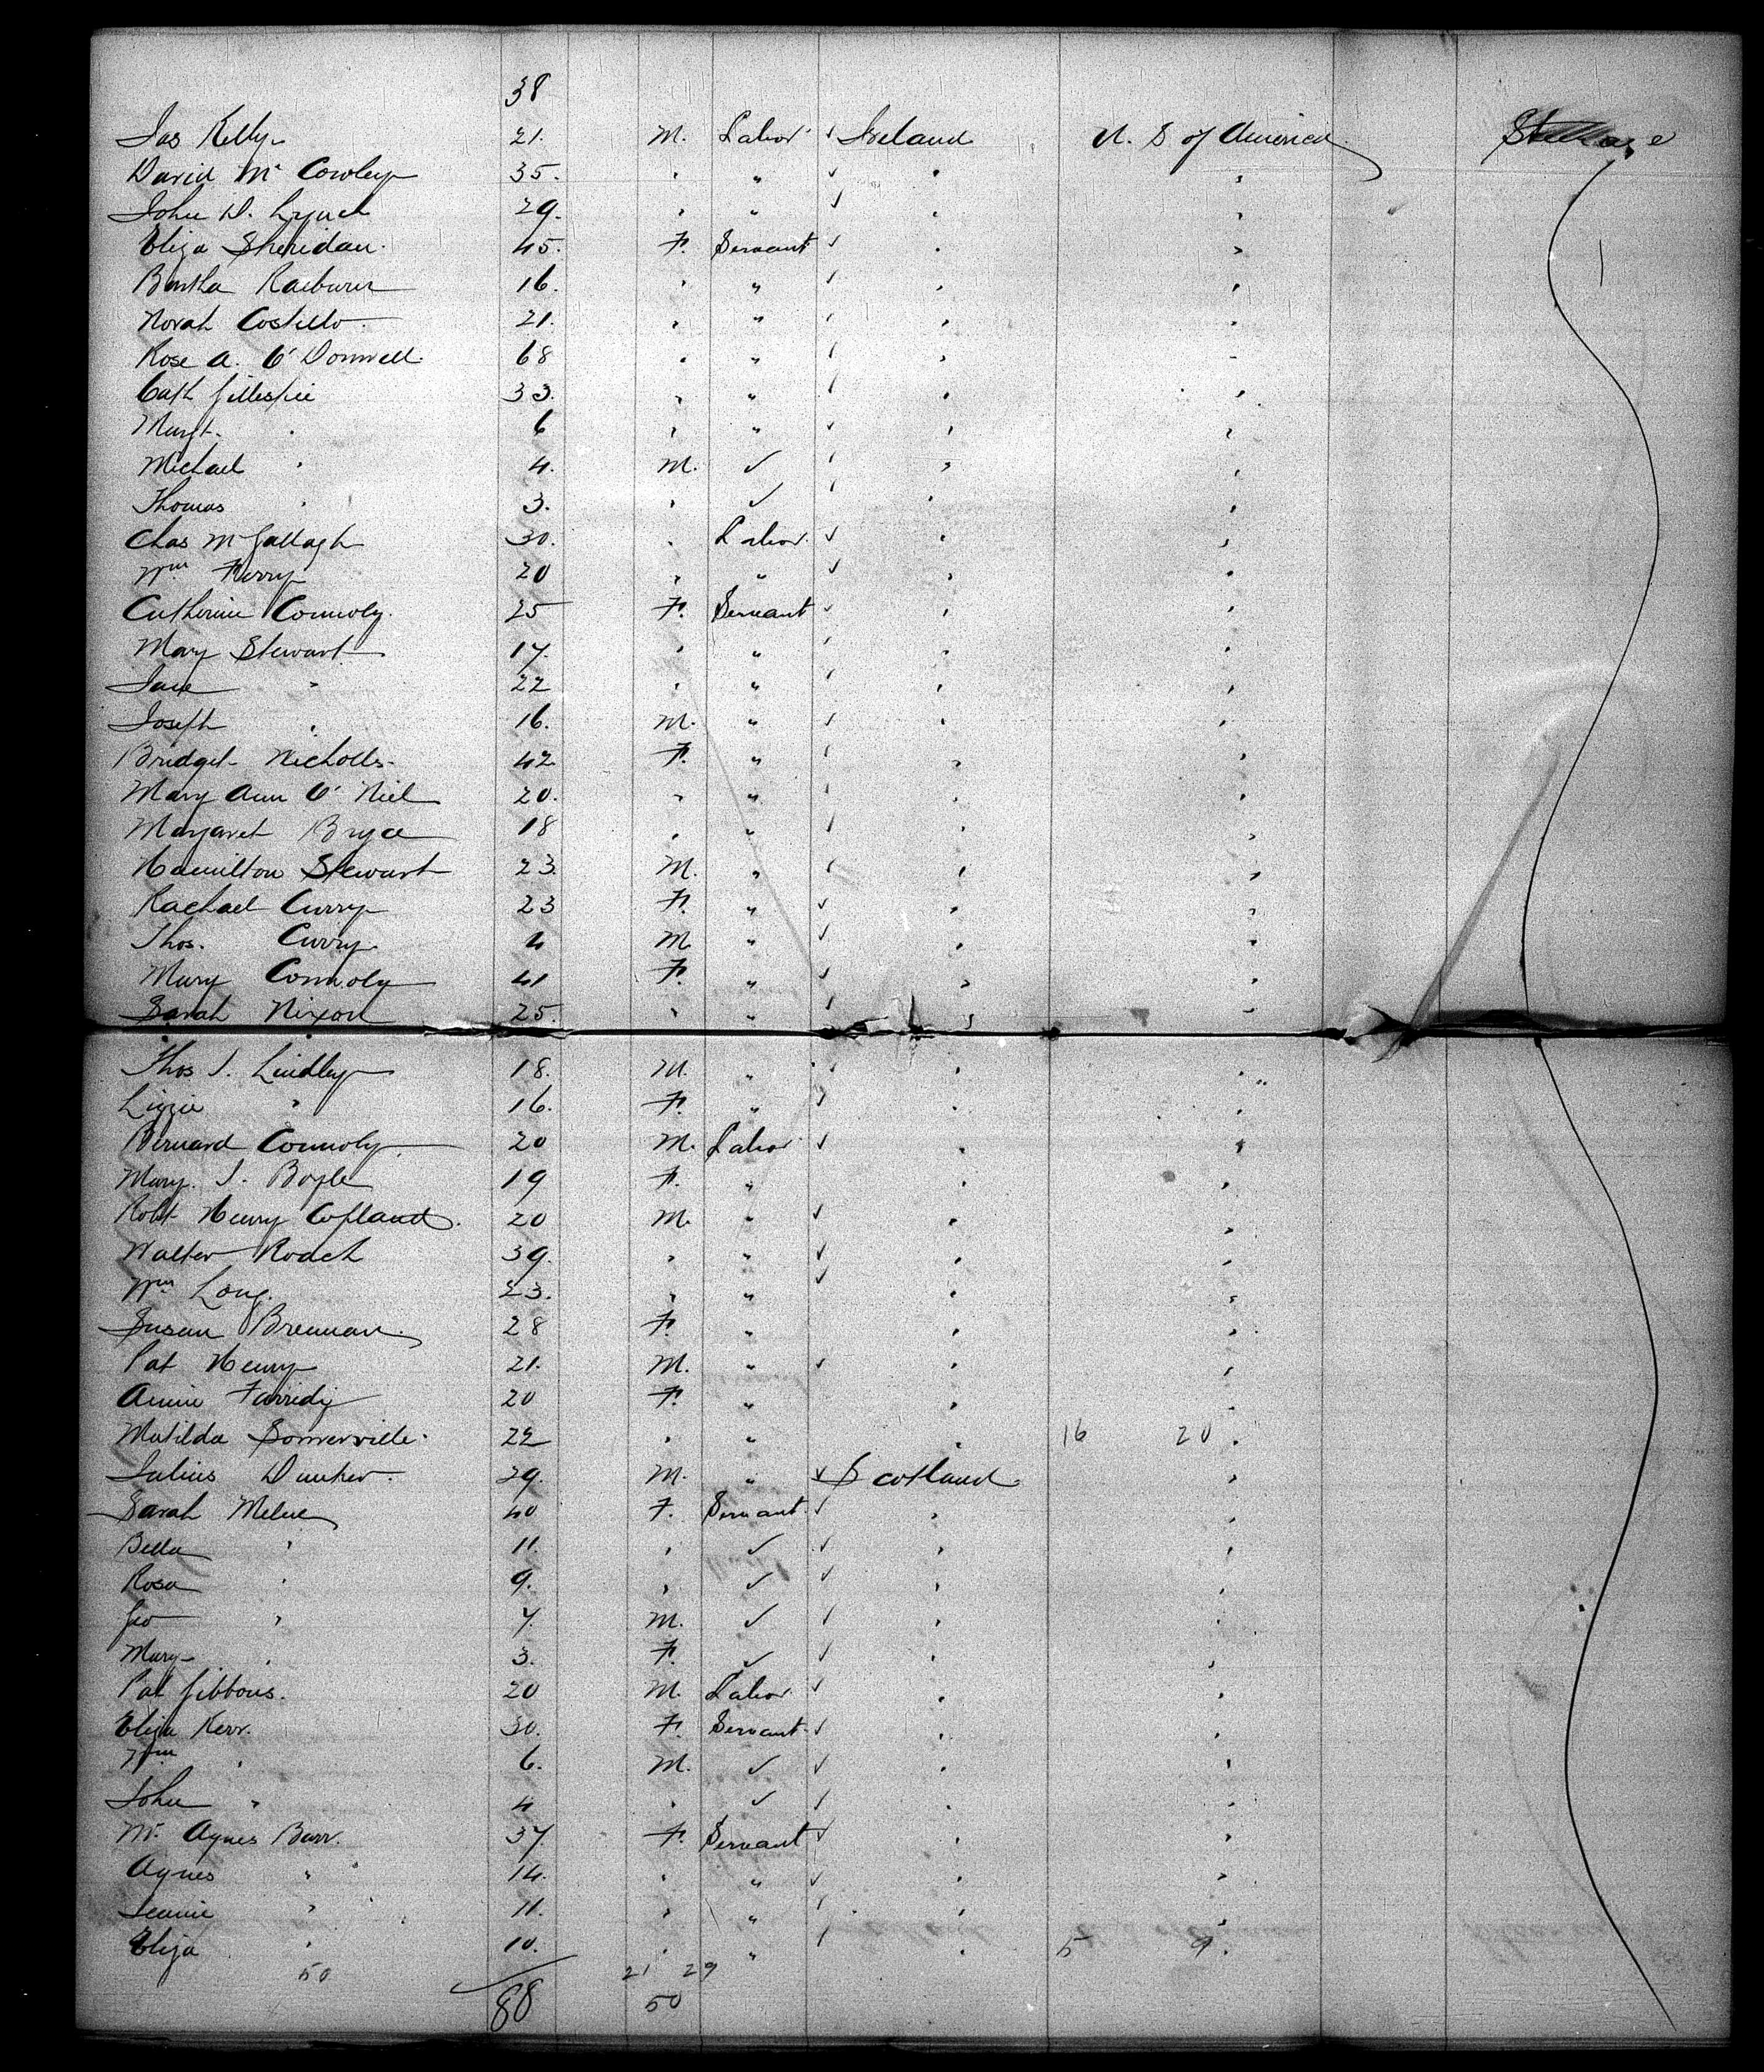 38
Jas Kelly 21. M. Labor ✓ Ireland U. S of America Steerage
David Mc Cowley 35. " " ✓ " "
John D. Lynch 29. " " ✓ " "
Eliza Sheridan. 45. F. Servant ✓ " "
Bertha Raeburn 16. " " ✓ " "
Norah Costello. 21. " " ✓ " "
Rose A. O'Donnell. 68 " " ✓ " "
Cath Gillespie 33. " " ✓ " "
Margt. " 6 " " ✓ " "
Michael " 4. M. ✓ ✓ " "
Thomas " 3. " ✓ ✓ " "
Chas McGallagh 30. " Labor. ✓ " "
Wm Ferry 20 " " ✓ " "
Catherine Connoly. 25 F. Servant ✓ " "
Mary Stewart 17. " " ✓ " "
Jane " 22 " " ✓ " "
Joseph " 16. M. " ✓ " "
Bridget Nicholls. 42 F. " ✓ " "
Mary Ann O'Niel 20. " " ✓ " "
Margaret Bryce 18 " " ✓ " "
Hamilton Stewart 23. M. " ✓ " "
Rachael Curry 23 F. " ✓ " "
Thos. Curry. 4 M " ✓ " "
Mary Connoly 41 F. " ✓ " "
Sarah Nixon 25. " " ✓ " "
Thos J. Lindley 18. M. " ✓ " "
Lizzie " 16. F. " ✓ " "
Bernard Connoly. 20 M. Labor ✓ " "
Mary. J. Boyle 19 F. " " "
Robt Henry Copland. 20 M. " ✓ " "
Walter Roach 39. " " ✓ " "
Wm Long. 23. " " ✓ " "
Susan Brennan. 28 F. " " "
Pat Henry 21. M. " ✓ " "
Annie 20 F. " " "
Matilda Somerville. 22 " " " 16 20 "
Julius Dunker. 29. M. " ✓ Scotland "
Sarah Milne 40 F. Servant. ✓ " "
Bella " 11. " ✓ ✓ " "
Rosa " 9. " ✓ ✓ " "
Geo " 7. M. ✓ ✓ " "
Mary " 3. F. ✓ ✓ " "
Pat Gibbons. 20 M. Labor ✓ " "
Eliza Kerr. 30. F. Servant. ✓ " "
Wm " 6. M. ✓ ✓ " "
John " 4 " ✓ ✓ " "
Mrs. Agnes Barr. 37. F. Servant ✓ " "
Agnes " 14. " " ✓ " "
Jeanie " 11. " " ✓ " "
Eliza " 10. " " ✓ " 5 9. "
50 21 29
88 50